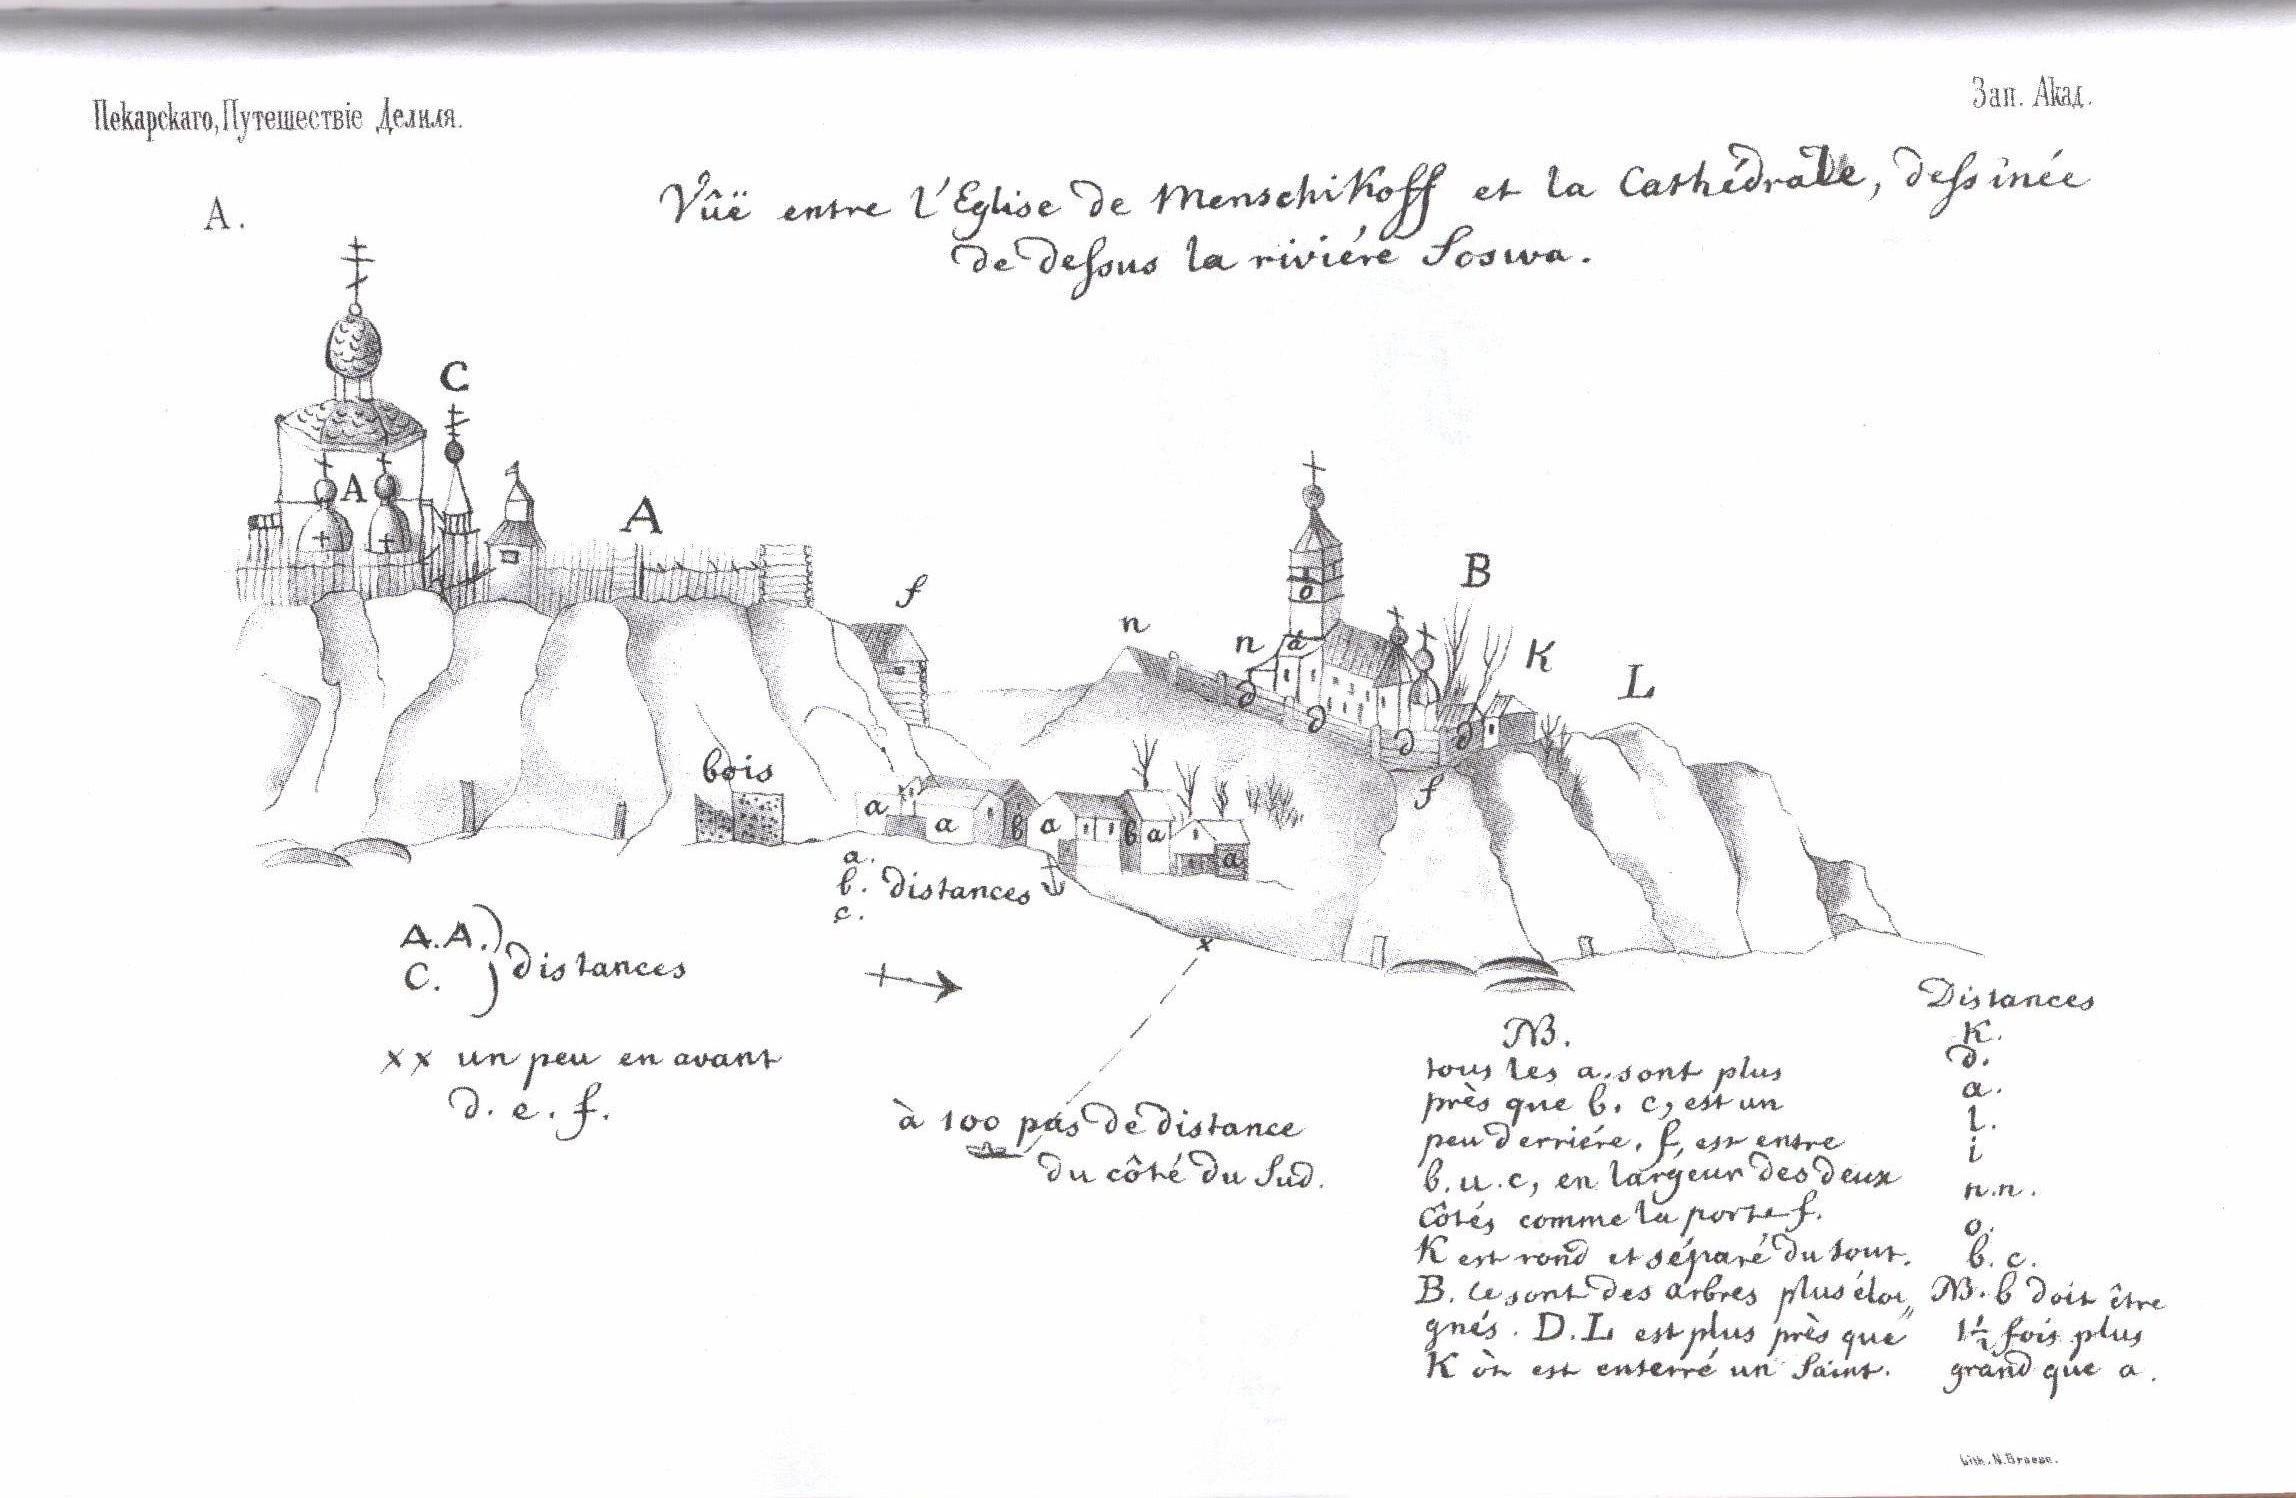 Пекарскаго, Путешествіе Делиля.
Зап. Акад.
A.
Vûë entre l'Eglise de Menschikoff et la Cathédrale, dessinée
de dessus la riviére Soswa.
C
A
A
f
B
n
n
K
L
o
d
d
d
d
d
f
bois
a
a
b
a
b
a
a
a.
b. distances
c.
A.A.)
C. ) distances
xx un peu en avant
d. e. f.
x
à 100 pas de distance
du côté du Sud.
NB.
tous les a. sont plus
près que b. c, est un
peu derriére. f, est entre
b. u. c, en largeur des deux
côtés comme la porte f.
K est rond et séparé du tout.
B. ce sont des arbres plus éloi„
gnés. D. L est plus près que
K òu est enterré un Saint.
Distances
K.
d.
a.
l.
i
n.n.
o.
b. c.
NB. b doit être
1½ fois plus
grand que a.
Lith. N. Braese.